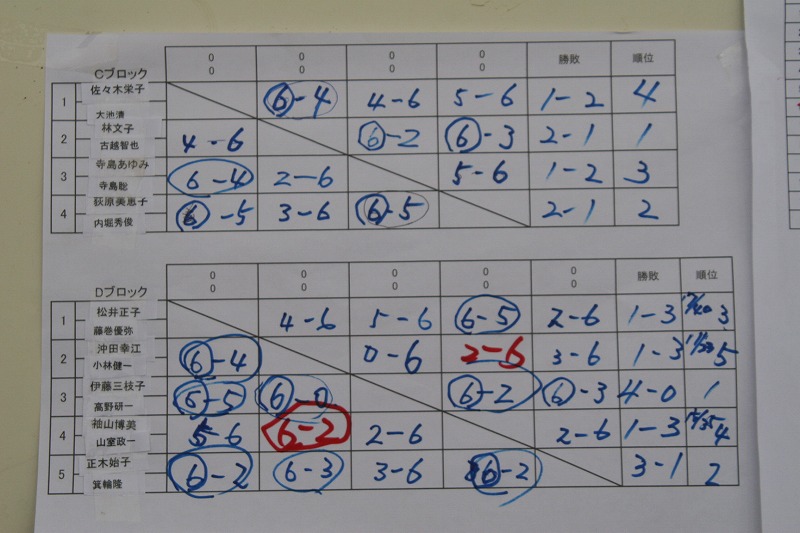 Cブロック 0 0 0 0 勝敗 順位
0 0 0 0
1 佐々木栄子 6-4 4-6 5-6 1-2 4
大池清
2 林文子 4-6 6-2 6-3 2-1 1
古越智也
3 寺島あゆみ 6-4 2-6 5-6 1-2 3
寺島聡
4 荻原美恵子 6-5 3-6 6-5 2-1 2
内堀秀俊
Dブロック 0 0 0 0 0 勝敗 順位
0 0 0 0 0
1 松井正子 4-6 5-6 6-5 2-6 1-3 3
藤巻優弥
2 沖田幸江 6-4 0-6 2-6 3-6 1-3 5
小林健一
3 伊藤三枝子 6-5 6-0 6-2 6-3 4-0 1
高野研一
4 袖山博美 5-6 6-2 2-6 2-6 1-3 4
山室政一
5 正木始子 6-2 6-3 3-6 6-2 3-1 2
箕輪隆